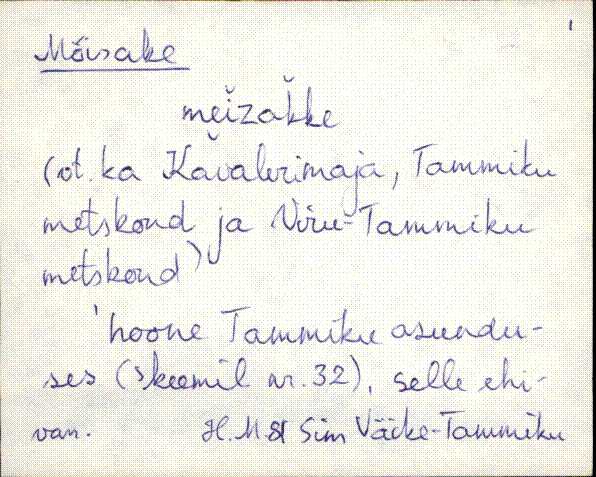 1
Mõisake
meĭzak̆ke
(vt. ka Kavalerimaja, Tammiku
metskond ja Viru-Tammiku
metskond)
'hoone Tammiku asundu-
ses (skeemil nr. 32), selle ehi-
van. H. M Sim Väike-Tammiku